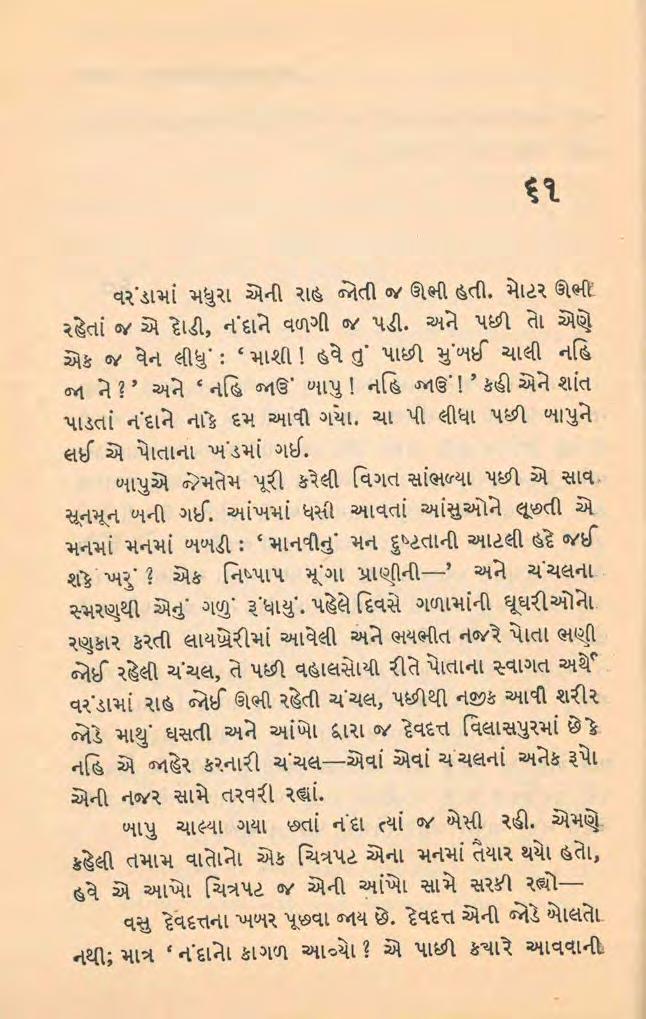 ૬૧
વરંડામાં મધુરા એની રાહ જોતી જ ઊભી હતી. મોટર ઊભી
રહેતાં જ એ દોડી, નંદાને વળગી જ પડી. અને પછી તો એણે
એક જ વેન લીધું : ‘ માશી ! હવે તું પાછી મુંબઈ ચાલી નહિ
જા ને ? ’ અને ‘ નહિ જાઉં બાપુ ! નહિ જાઉં ! ’ કહી એને શાંત
પાડતાં નંદાને નાકે દમ આવી ગયો. ચા પી લીધા પછી બાપુને
લઈ એ પોતાના ખંડમાં ગઈ.
બાપુએ જેમતેમ પૂરી કરેલી વિગત સાંભળ્યા પછી એ સાવ
સૂનમૂન બની ગઈ. આંખમાં ધસી આવતાં આંસુઓને લૂછતી એ
મનમાં મનમાં બબડી : ‘ માનવીનું મન દુષ્ટતાની આટલી હદે જઈ
શકે ખરું ? એક નિષ્પાપ મૂંગા પ્રાણીની—’ અને ચંચલના
સ્મરણથી એનું ગળું રૂંધાયું. પહેલે દિવસે ગળામાંની ઘૂઘરીઓનો
રણકાર કરતી લાયબ્રેરીમાં આવેલી અને ભયભીત નજરે પોતા ભણી
જોઈ રહેલી ચંચલ, તે પછી વહાલસોયી રીતે પોતાના સ્વાગત અર્થે
વરંડામાં રાહ જોઈ ઊભી રહેતી ચંચલ, પછીથી નજીક આવી શરીર
જોડે માથું ઘસતી અને આંખો દ્વારા જ દેવદત્ત વિલાસપુરમાં છે કે
નહિ એ જાહેર કરનારી ચંચલ—એવાં એવાં ચંચલનાં અનેક રૂપો
એની નજર સામે તરવરી રહ્યાં.
બાપુ ચાલ્યા ગયા છતાં નંદા ત્યાં જ બેસી રહી. એમણે
કહેલી તમામ વાતોનો એક ચિત્રપટ એના મનમાં તૈયાર થયો હતો,
હવે એ આખો ચિત્રપટ જ એની આંખો સામે સરકી રહ્યો—
વસુ દેવદત્તના ખબર પૂછવા જાય છે. દેવદત્ત એની જોડે બોલતો
નથી; માત્ર ‘ નંદાનો કાગળ આવ્યો ? એ પાછી કયારે આવવાની